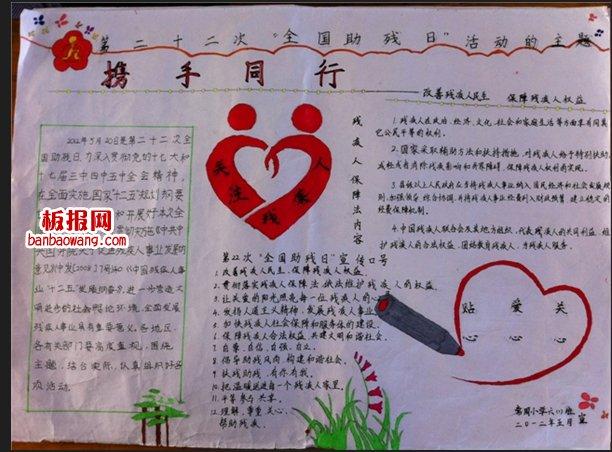 第二十二次"全国助残日"活动的主题
携手同行
改善残疾人民生 保障残疾人权益
2012年5月20日是第二十二次全
国助残日,为深入贯彻党的十七大和
十七届三中四中五中全会精神,
在全面实施国家"十二五"规划纲要
和开展好本次全
贯彻实施《中共中
央国务院关于促进残疾人事业发展的
意见》(中发[2008]7号)和《中国残疾人事
业"十二五"发展纲要》,进一步营造文
明进步的社会舆论环境,全面发展
残疾人事业具有重要意义。各地区、
各有关部门要高度重视,围绕
主题,结合实际,认真组织好各
项活动。
板报网
banbaowang.com
关注残疾人
残疾人保障法内容
1.残疾人在政治、经济、文化、社会和家庭生活等方面享有同其
它公民平等的权利。
2.国家采取辅助方法和扶持措施,对残疾人给予特别扶助,
减轻或者消除残疾影响和外界障碍,保障残疾人权利的实现。
3.县级以上人民政府应当将残疾人事业纳入国民经济和社会发展规
划,加强领导,综合协调,并将残疾人事业经费列入财政预算,建立稳定的
经费保障机制。
4.中国残疾人联合会及其地方组织,代表残疾人的共同利益,维
护残疾人的合法权益,团结教育残疾人,为残疾人服务。
第22次"全国助残日"宣传口号
1.改善残疾人民生,保障残疾人权益。
2.贯彻落实残疾人保障法,依法维护残疾人的权益。
3.让灿烂的阳光照亮每一位残疾人的心
4.发扬人道主义精神,发展残疾人事业
5.加快残疾人社会保障和服务体系的建设。
6.保障残疾人合法权益,共建文明和谐社会。
7.自尊,自信,自强,自立。
8.倡导助残风尚,构建和谐社会。
9.扶残助残,有你有我。
10.把温暖送进每一个残疾人家里。
11.平等 参与 共享。
12.理解,尊重,关心,
帮助残疾。
贴爱关
心心心
六(1)班
二〇一二年五月